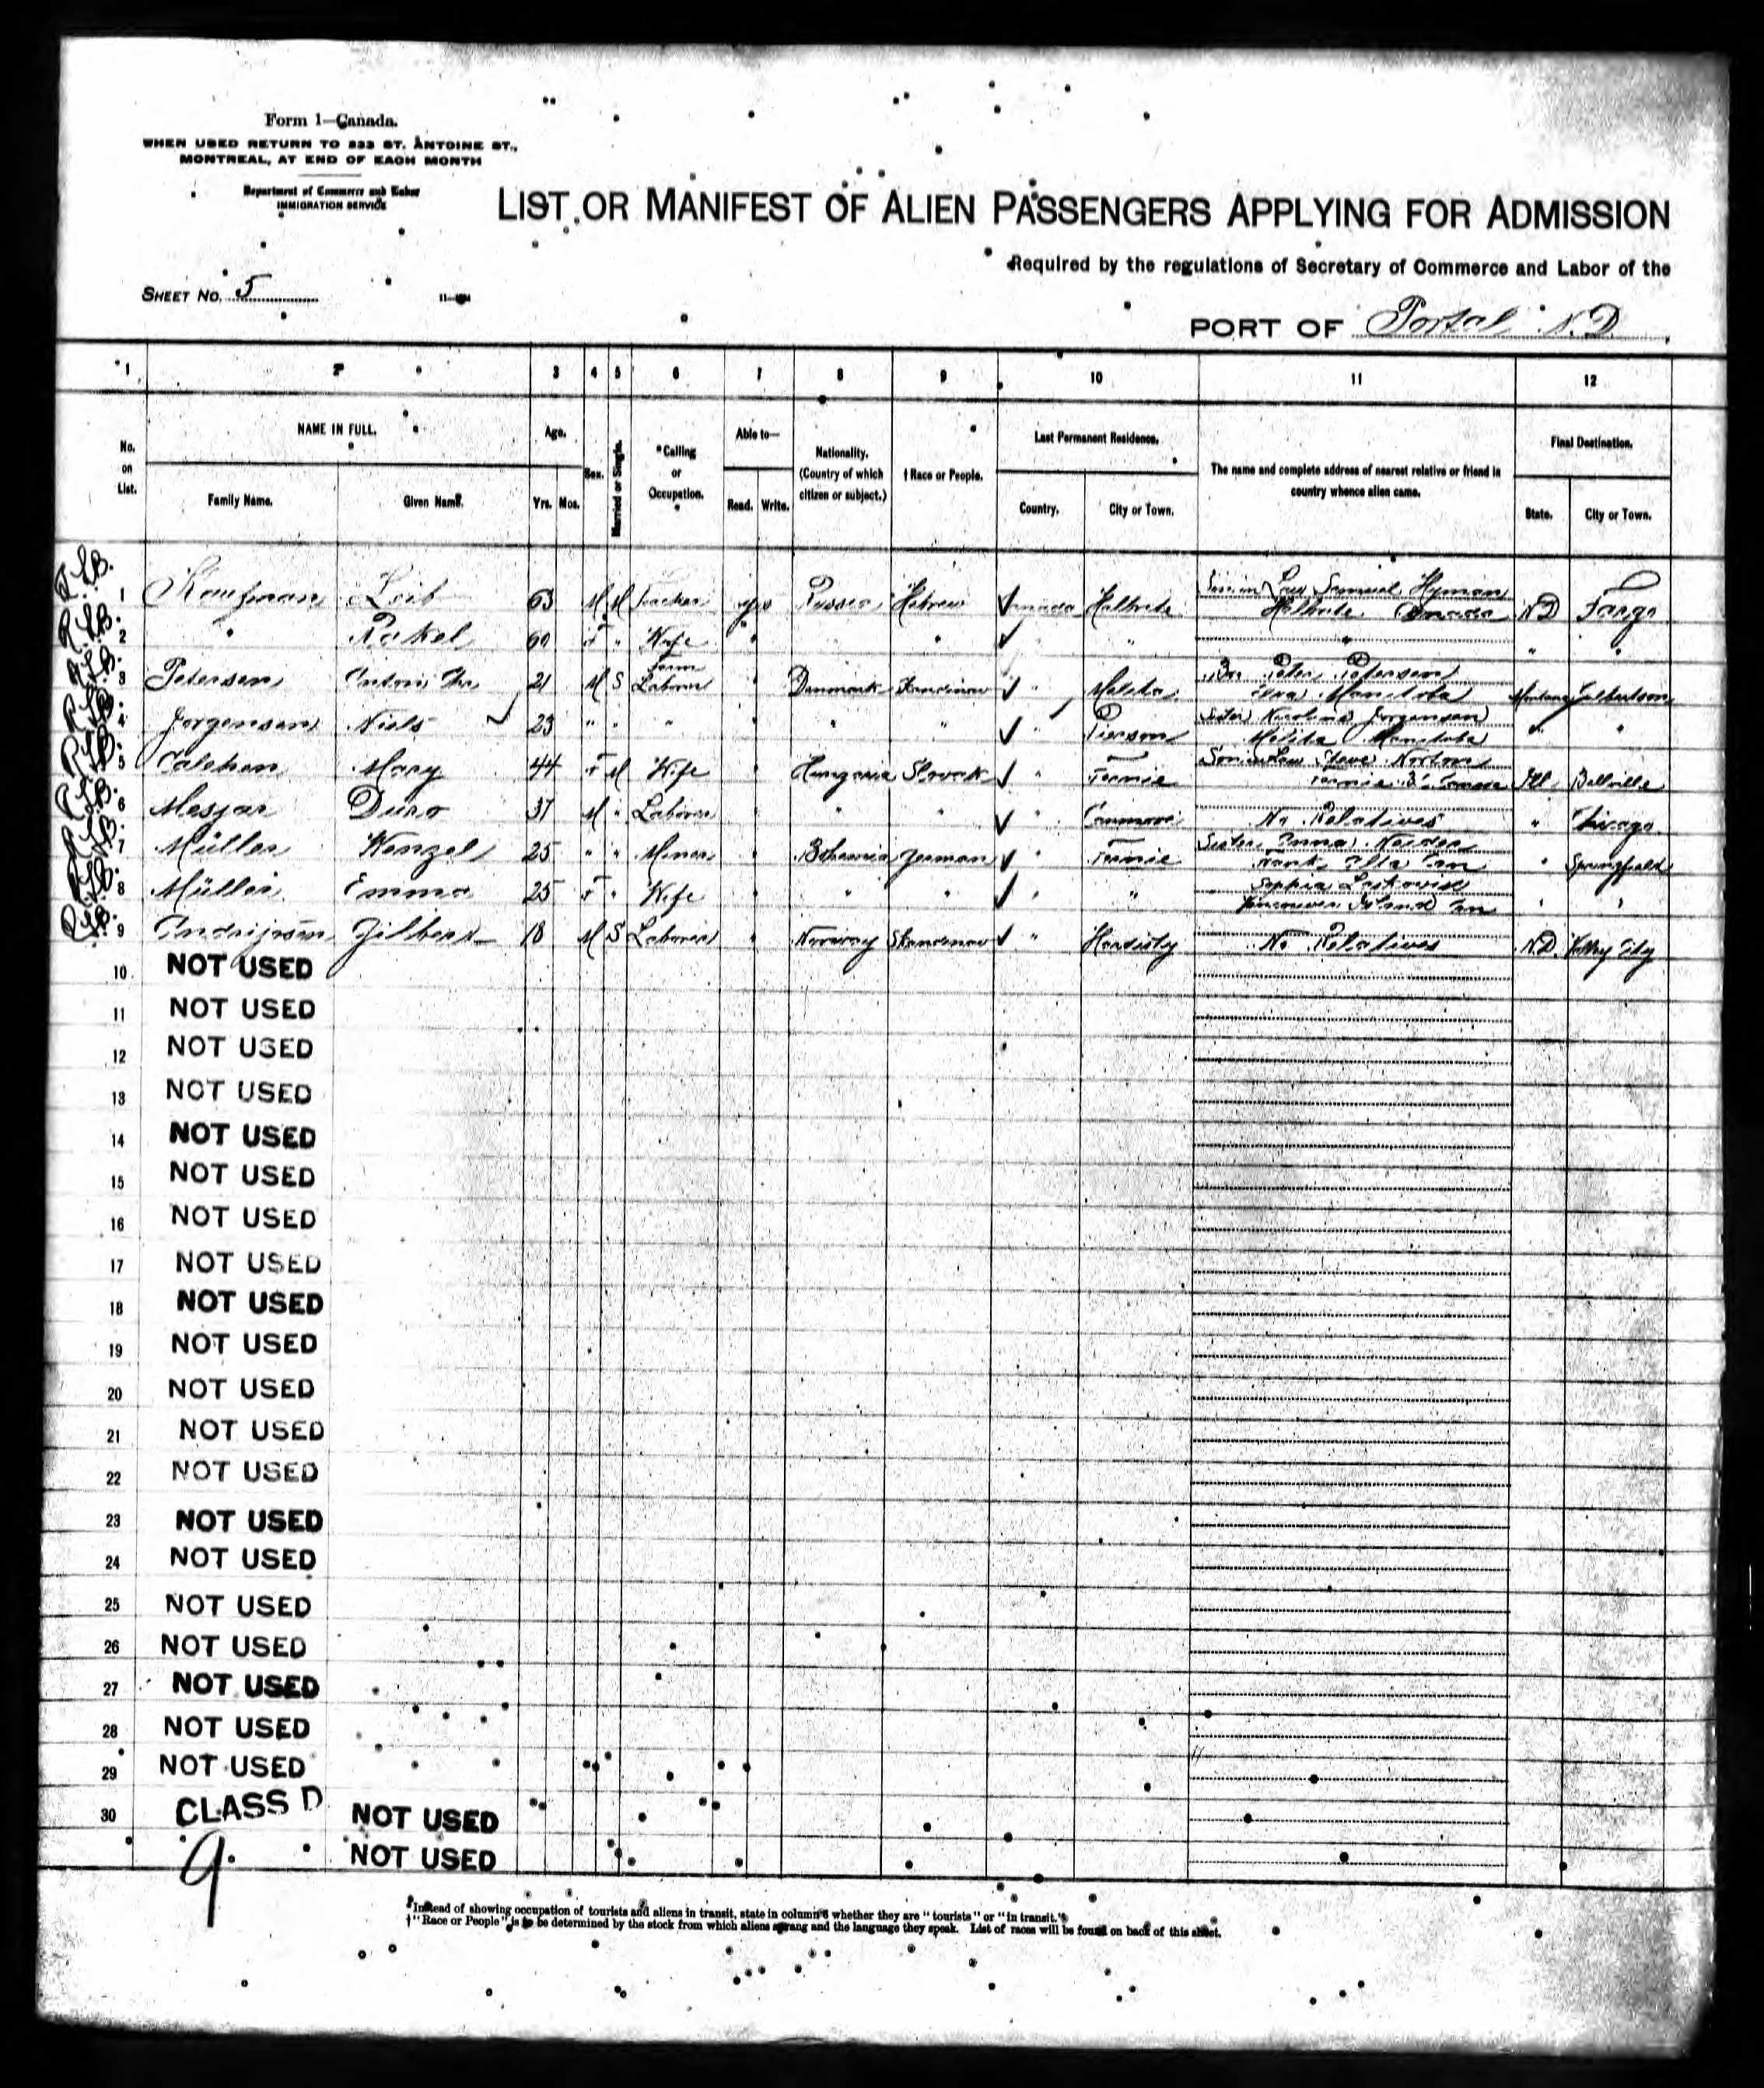 Form 1—Canada.
WHEN USED RETURN TO 333 ST. ANTOINE ST.,
MONTREAL, AT END OF EACH MONTH
Department of Commerce and Labor
IMMIGRATION SERVICE
LIST OR MANIFEST OF ALIEN PASSENGERS APPLYING FOR ADMISSION
Required by the regulations of Secretary of Commerce and Labor of the
SHEET NO. 5
PORT OF Portal N.D.
1 2 3 4 5 6 7 8 9 10 11 12
No. on List.
NAME IN FULL.
Family Name. Given Name.
Age.
Yrs. Mos.
Sex.
Married or Single.
*Calling or Occupation.
Able to—
Read. Write.
Nationality. (Country of which citizen or subject.)
†Race or People.
Last Permanent Residence.
Country. City or Town.
The name and complete address of nearest relative or friend in country whence alien came.
Final Destination.
State. City or Town.
1 Kaufman Leib 63 M M yes Russia Hebrew Canada Samuel Hyman Canada ND Fargo
2 " Rakel 60 F " Wife " " " " "
3 Petersen 21 M S Farm Laborer " Denmark Scandinav " Melita Peter Petersen Manitoba Montana Culbertson
4 Jorgensen Niels 23 " " " " " " " Pierson Sister Jorgensen Melita Manitoba " "
5 Mary 44 F M Wife " Hungaria Slovak " Fernie Son in Law Steve Fernie Ill Bellville
6 Mesjar Duro 37 M " Laborer " " " " Canmore No Relatives " Chicago
7 Müller Wenzel 25 " " Miner " Bohemia German " Fernie Sister Anna " Springfield
8 Müller Emma 25 F " Wife " " " " " Sophia Vancouver Island Can " "
9 18 M S Laborer " Norway Scandinav " Hardisty No Relatives N.D. Valley City
10 NOT USED
11 NOT USED
12 NOT USED
13 NOT USED
14 NOT USED
15 NOT USED
16 NOT USED
17 NOT USED
18 NOT USED
19 NOT USED
20 NOT USED
21 NOT USED
22 NOT USED
23 NOT USED
24 NOT USED
25 NOT USED
26 NOT USED
27 NOT USED
28 NOT USED
29 NOT USED
30 CLASS D NOT USED
9. NOT USED
*Instead of showing occupation of tourists and aliens in transit, state in column 6 whether they are "tourists" or "in transit."
†"Race or People" is to be determined by the stock from which aliens sprang and the language they speak. List of races will be found on back of this sheet.